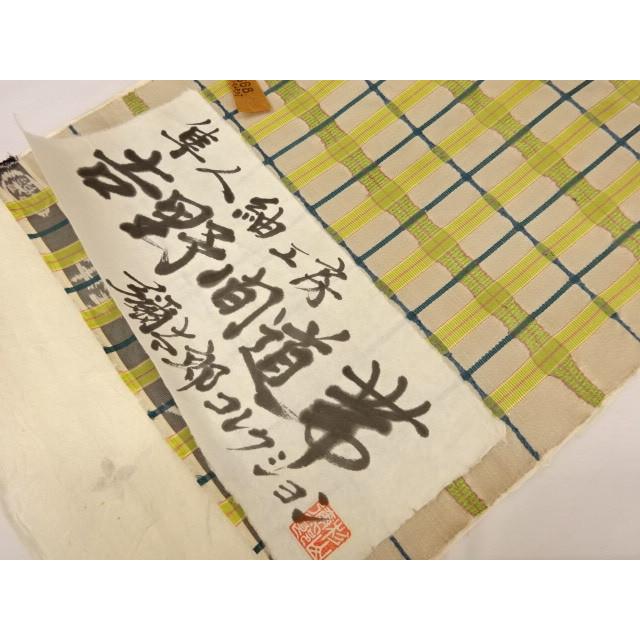 隼人紬工房
吉野間道帯
彌太郎コレクション